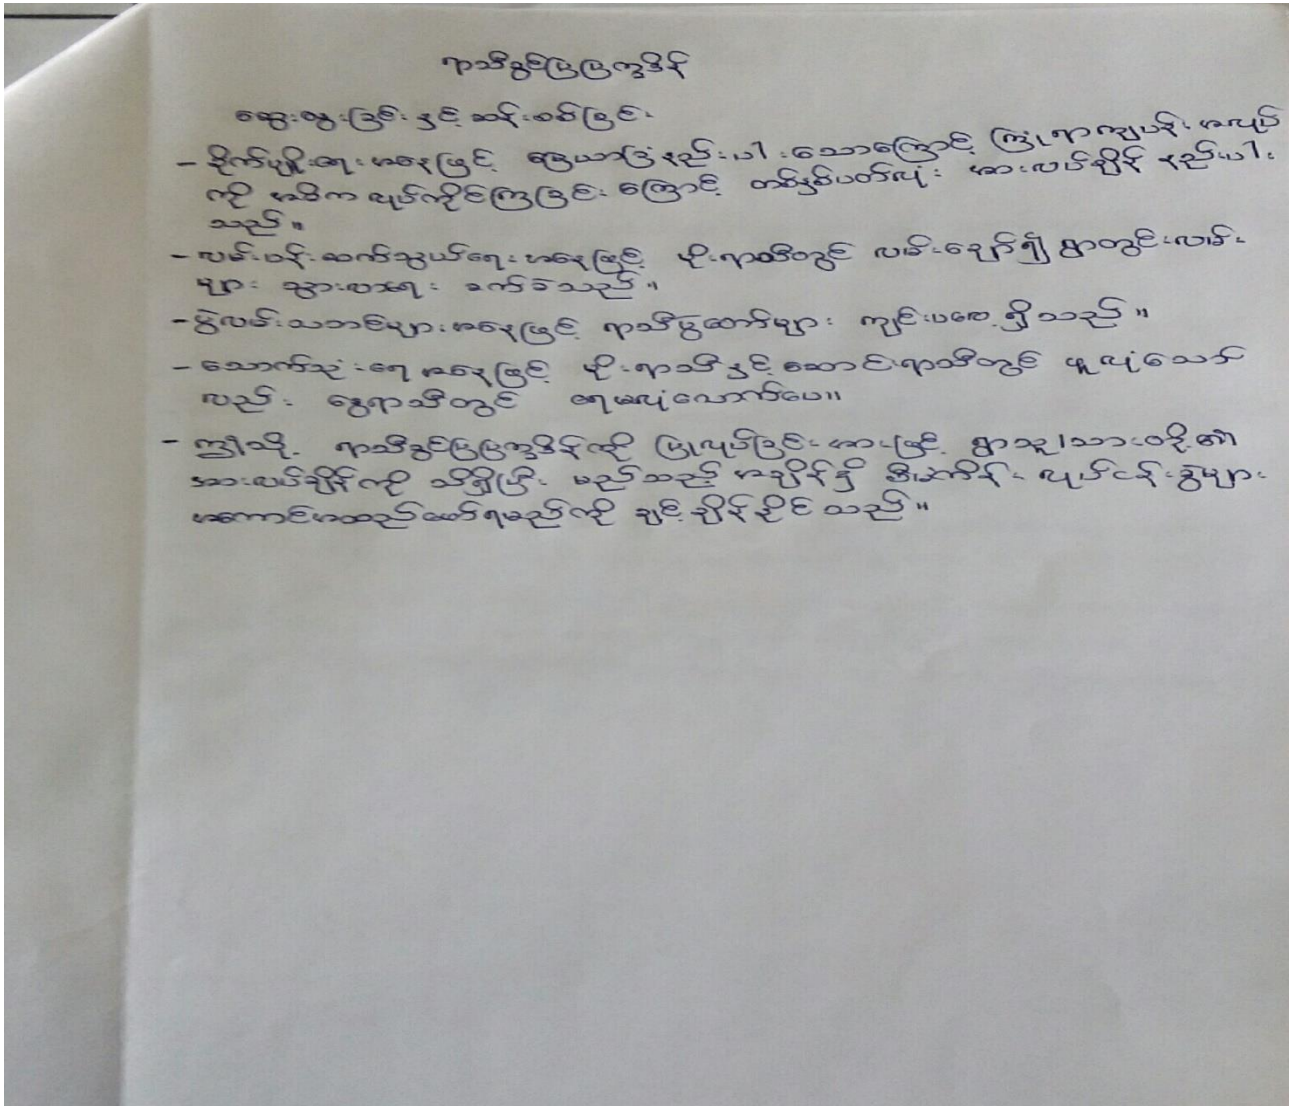 ရာသီခွင်ပြပြက္ခဒိန်
ဆွေးနွေးခြင်းနှင့် ဆန်းစစ်ခြင်း
- စိုက်ပျိုးရေးအနေဖြင့် မြေယာပြုံနည်းပါးသောကြောင့် ကြုံရာကျပန်းအလုပ်
ကို အဓိကလုပ်ကိုင်ကြခြင်းကြောင့် တစ်နှစ်ပတ်လုံး အားလပ်ချိန် နည်းပါး
သည်။
- လမ်းပန်းဆက်သွယ်ရေးအနေဖြင့် မိုးရာသီတွင် လမ်းချော်၍ ရွာတွင်းလမ်း
များ သွားလာရေး ခက်ခဲသည်။
- ပွဲလမ်းသဘင်များအနေဖြင့် ရာသီပွဲတော်များ ကျင်းပလေ့ရှိသည်။
- သောက်သုံးရေအနေဖြင့် မိုးရာသီနှင့်ဆောင်းရာသီတွင် ဖူလုံသော်
လည်း နွေရာသီတွင် ရေမလုံလောက်ပေ။
- ဤသို့ ရာသီခွင်ပြပြက္ခဒိန်ကို ပြုလုပ်ခြင်းအားဖြင့် ရွာသူ/သားတို့၏
အားလပ်ချိန်ကို သိရှိပြီး မည်သည့်အချိန်၌ စီမံကိန်းလုပ်ငန်းစဉ်များ
အကောင်အထည်ဖော်ရမည်ကို ချင့်ချိန်နိုင်သည်။